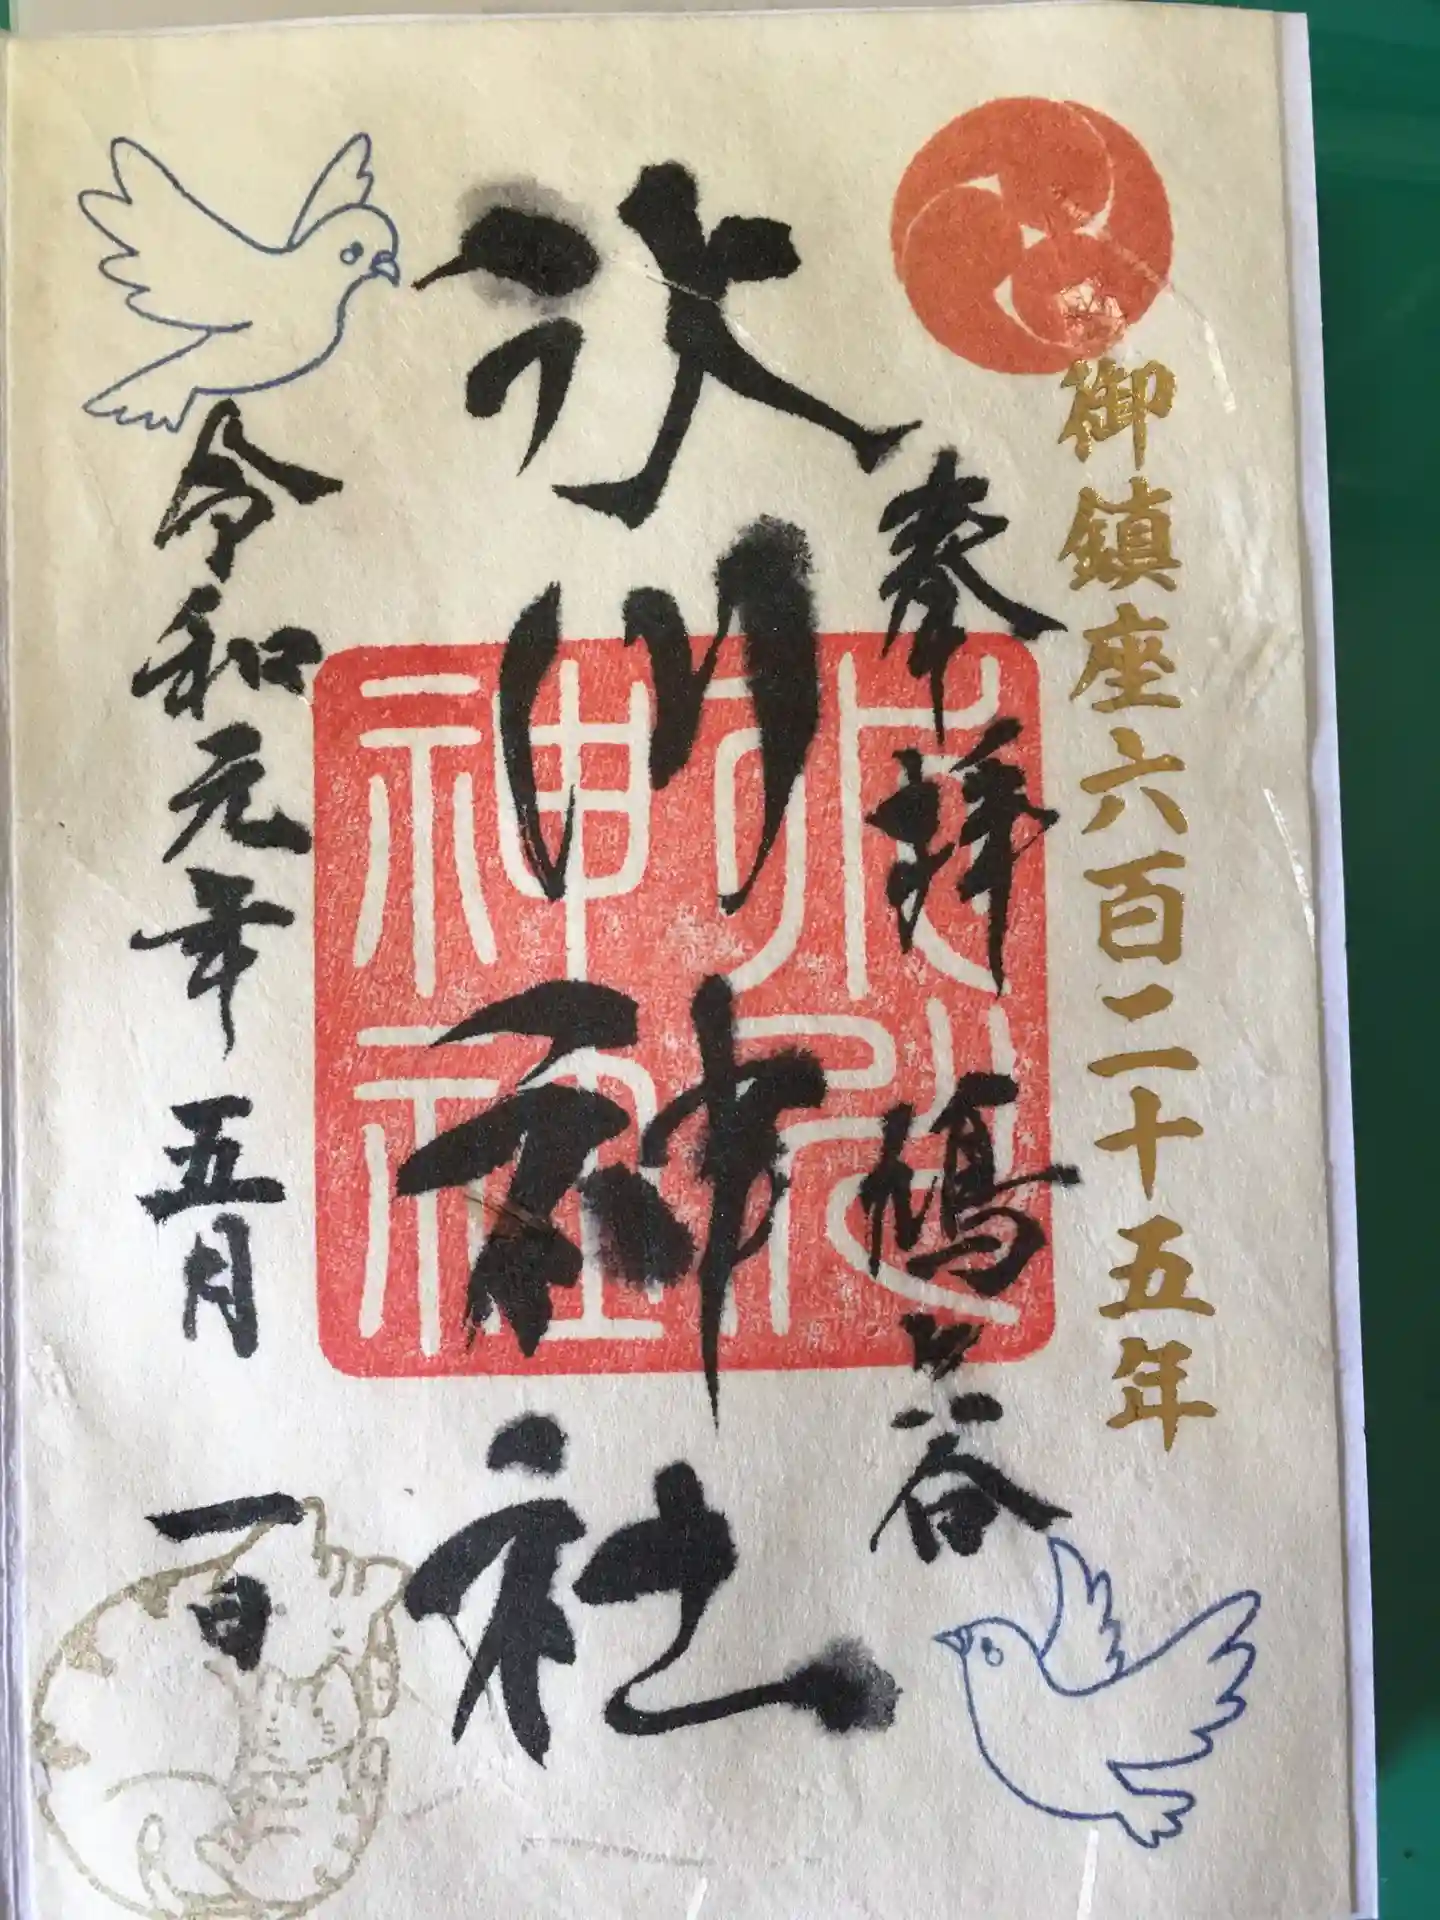 御鎮座六百二十五年
奉拝 鳩ヶ谷
氷川神社
氷川
神社
令和元年 五月 一日